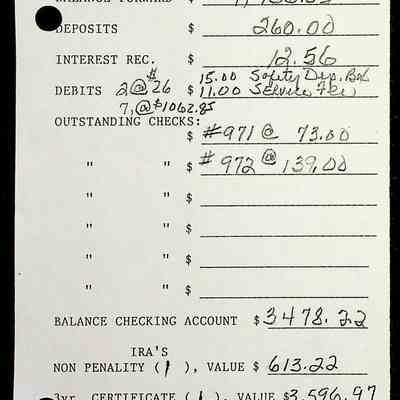 BALANCE FORWARD $
DEPOSITS $ 260.00
INTEREST REC. $ 12.56
DEBITS 2@$26 $ 15.00 Safety Dep. Box
7,@$1062.85 11.00 Service Fee
OUTSTANDING CHECKS:
$ #971 @ 73.00
" " $ #972 @ 139,00
" " $
" " $
" " $
" " $
BALANCE CHECKING ACCOUNT $3478.22
IRA'S
NON PENALITY (1), VALUE $ 613.22
3yr. CERTIFICATE (1), VALUE $3,596.97